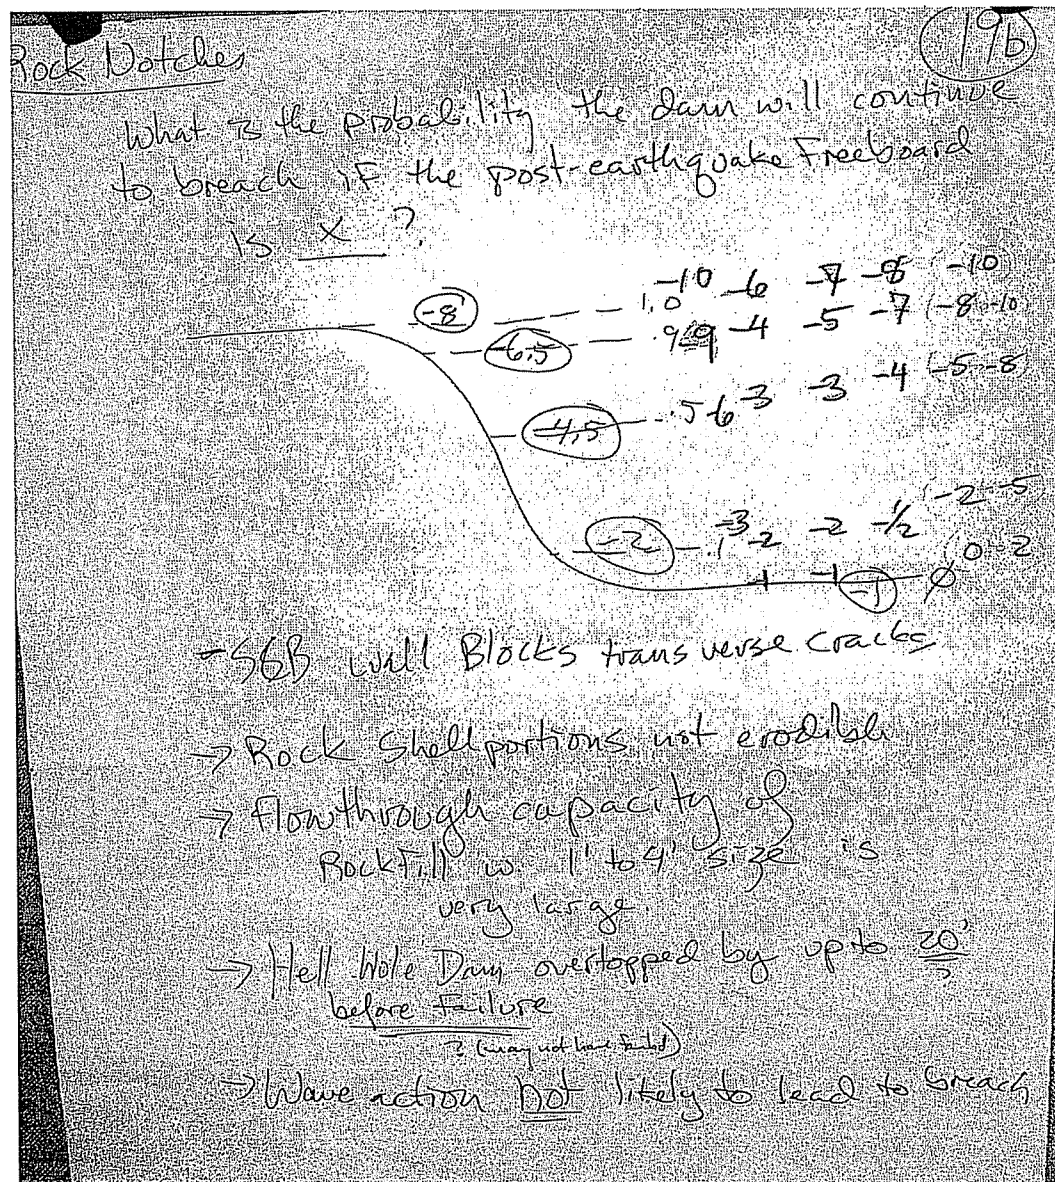 19b
Rock Notches
What is the probability the dam will continue
to breach if the post-earthquake Freeboard
is x ?
-8 1.0 -10 -6 -7 -8 (-10
-6.5 .9 -9 -4 -5 -7 (-8 -10
-4.5 .5 -6 -3 -3 -4 (-5 -8
-2 .1 -3 -2 -2 -1/2 (-2 -5
-1 -1 -1 Ø (0 -2
- SCB wall Blocks transverse cracks
→ Rock Shell portions not erodible
→ Flowthrough capacity of
Rockfill w. 1' to 4' size is
very large.
→ Hell Hole Dam overtopped by up to 20'
?
before Failure
? (may not have failed)
→ Wave action not likely to lead to breach